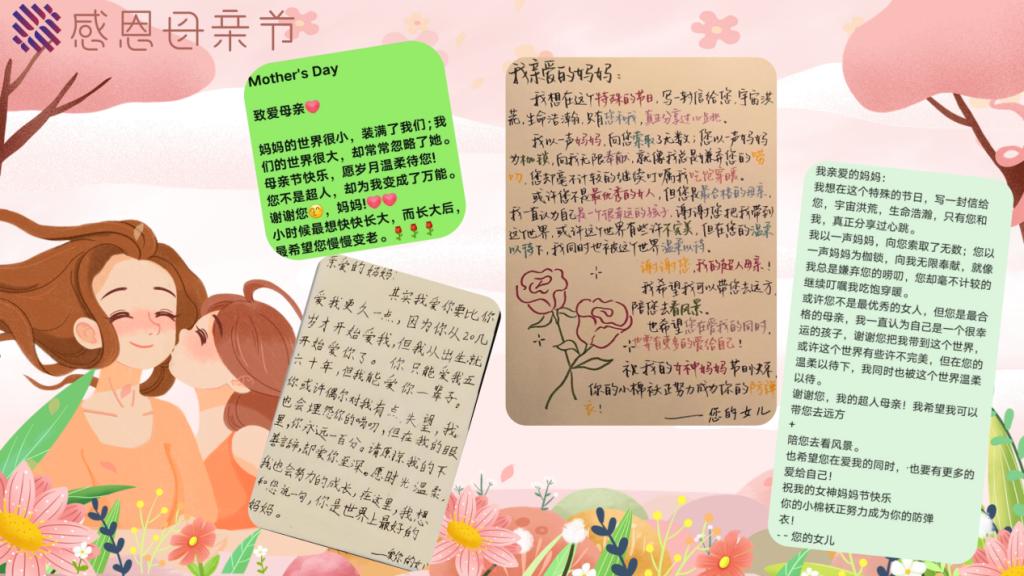 感恩母亲节
Mother's Day
致爱母亲❤
妈妈的世界很小，装满了我们；我
们的世界很大，却常常忽略了她。
母亲节快乐，愿岁月温柔待您!
您不是超人，却为我变成了万能。
谢谢您😊，妈妈!❤❤
小时候最想快快长大，而长大后，
最希望您慢慢变老。🌹🌹🌹
亲爱的妈妈：
其实我爱你要比你
爱我更久一点，因为你从20几
岁才开始爱我，但我从出生就
开始爱你了。你只能爱我五
六十年，但我能爱你一辈子。
你或许偶尔对我有点失望，我
也会埋怨你的唠叨，但在我的眼
里，你永远一百分。请原谅我的不
善言辞，却爱你至深。愿时光温柔，
我也会努力的成长，在这里，我想
和您说一句，你是世界上最好的
妈妈。
——爱你的女儿
我亲爱的妈妈：
我想在这个特殊的节日，写一封信给您，宇宙洪
荒，生命浩瀚，只有您和我，真正分享过心跳。
我以一声妈妈，向您索取了无数；您以一声妈妈
为枷锁，向我无限奉献，就像我总是嫌弃您的唠
叨，您却毫不计较的继续叮嘱我吃饱穿暖。
或许您不是最优秀的女人，但您是最合格的母亲，
我一直认为自己是一个很幸运的孩子，谢谢您把我带到
这个世界，或许这个世界有些许不完美，但在您的温柔
以待下，我同时也被这个世界温柔以待。
谢谢您，我的超人母亲！
我希望我可以带您去远方，
陪您去看风景。
也希望您在爱我的同时，
也要有更多的爱给自己！
祝我的女神妈妈节日快乐，
你的小棉袄正努力成为你的防弹
衣！
——您的女儿
我亲爱的妈妈：
我想在这个特殊的节日，写一封信给
您，宇宙洪荒，生命浩瀚，只有您和
我，真正分享过心跳。
我以一声妈妈，向您索取了无数；您以
一声妈妈为枷锁，向我无限奉献，就像
我总是嫌弃您的唠叨，您却毫不计较的
继续叮嘱我吃饱穿暖。
或许您不是最优秀的女人，但您是最合
格的母亲，我一直认为自己是一个很幸
运的孩子，谢谢您把我带到这个世界，
或许这个世界有些许不完美，但在您的
温柔以待下，我同时也被这个世界温柔
以待。
谢谢您，我的超人母亲！我希望我可以
带您去远方
+
陪您去看风景。
也希望您在爱我的同时，·也要有更多的
爱给自己！
祝我的女神妈妈节快乐
你的小棉袄正努力成为你的防弹
衣！
- - 您的女儿